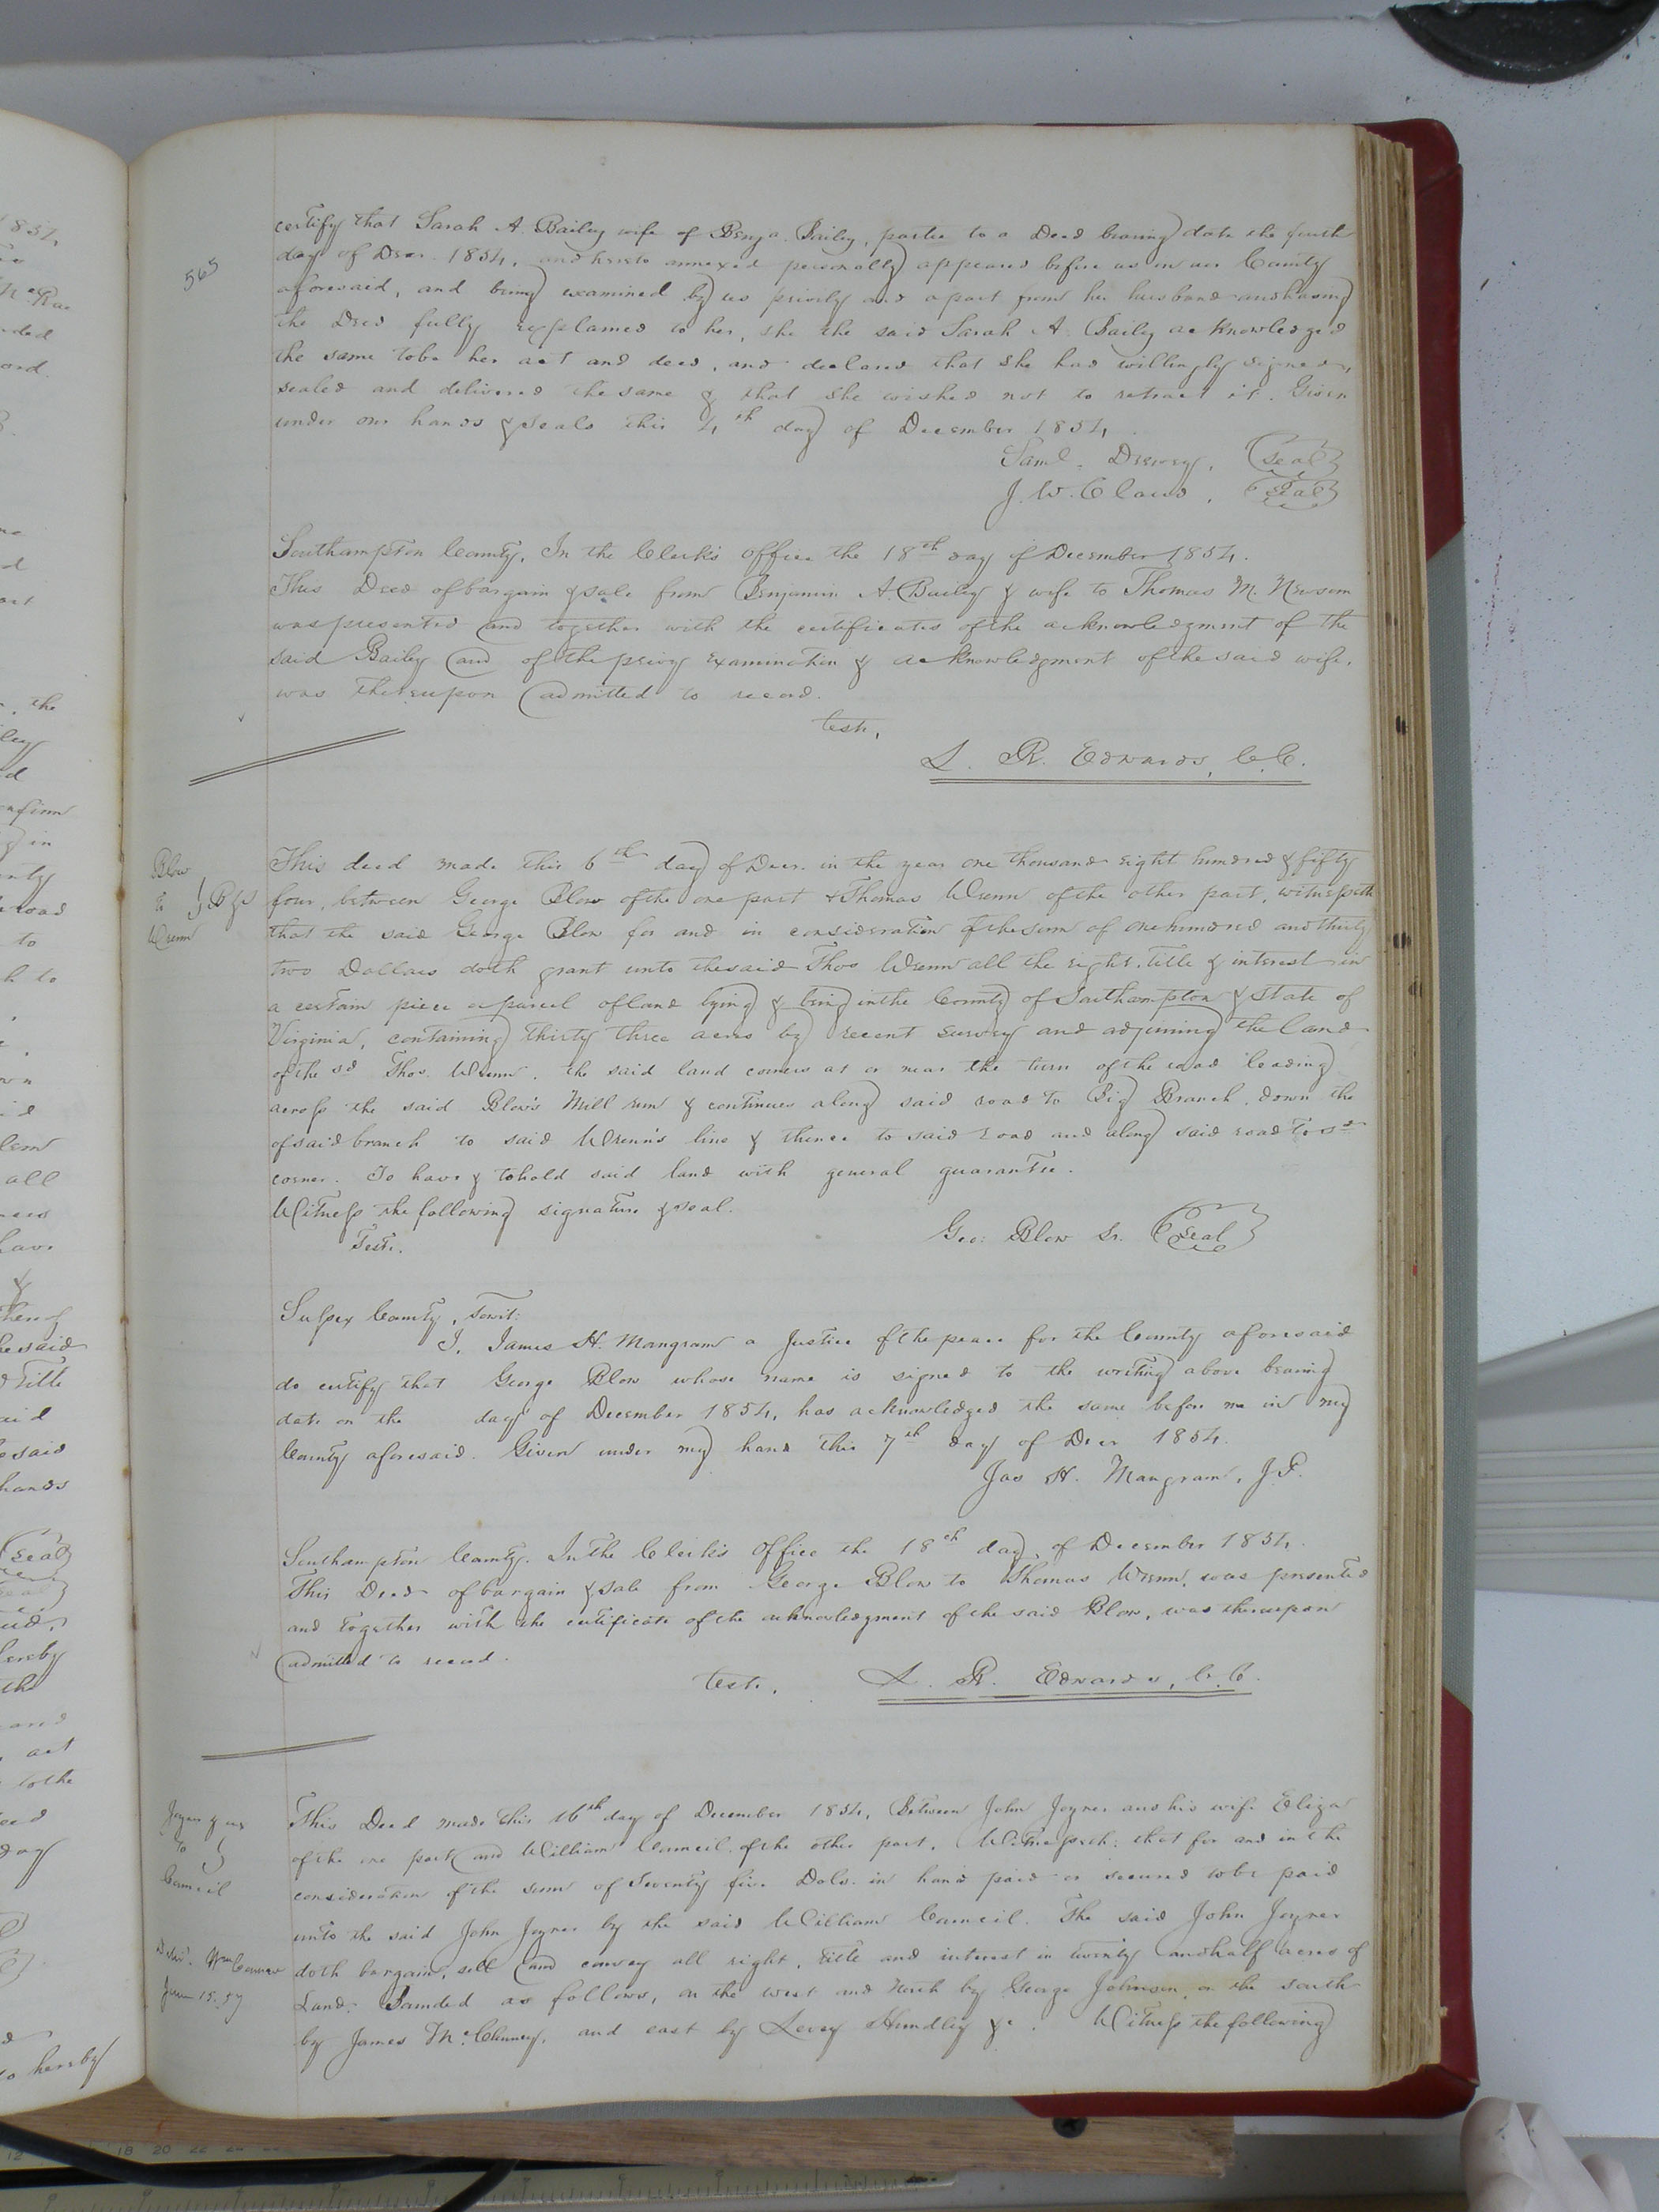 565
certify that Sarah A. Bailey wife of Benja. Bailey, partie to a Deed bearing date the fourth
day of Decr. 1854, and hereto annexed personally appeared before us in our County
aforesaid, and being examined by us privily and apart from her husband and having
the Deed fully explained to her, she the said Sarah A. Bailey acknowledged
the same to be her act and deed, and declared that she had willingly signed,
sealed and delivered the same & that she wished not to retract it. Given
under our hands & seals this 4th day of December 1854
Saml. Drewry, (seal)
J. W. Claud, (seal)
Southampton County, In the Clerk's office the 18th day of December 1854.
This Deed of bargain & sale from Benjamin A. Bailey & wife to Thomas M. Newsom
was presented and together with the certificates of the acknowledgment of the
said Bailey and of the privy examination & acknowledgment of the said wife,
was thereupon admitted to record.
teste,
L. R. Edwards, C.C.
Blow
to } B&S
Wrenn
This deed made this 6th day of Decr. in the year one thousand eight hundred & fifty
four, between George Blow of the one part & Thomas Wrenn of the other part, witnesseth
that the said George Blow for and in consideration of the sum of one hundred and thirty
two Dollars doth grant unto the said Thos Wrenn all the right, title & interest in
a certain piece or parcel of land lying & being in the County of Southampton & State of
Virginia, containing thirty three acres by recent survey and adjoining the land
of the sd Thos. Wrenn. the said land corners at or near the turn of the road leading
across the said Blow's Mill run & continues along said road to Big Branch, down the
of said branch to said Wrenn's line & thence to said road and along said road to sd
corner. To have & to hold said land with general guarantee.
Witness the following signature & seal.
Teste.
Geo: Blow Sr. (Seal)
Sussex County, towit:
I, James H. Mangram a Justice of the peace for the County aforesaid
do certify that George Blow whose name is signed to the writing above bearing
date on the day of December 1854, has acknowledged the same before me in my
County aforesaid. Given under my hand this 7th day of Decr 1854.
Jas H. Mangram, J.P.
Southampton County. In the Clerk's Office the 18th day of December 1854.
This Deed of bargain & sale from George Blow to Thomas Wrenn, was presented
and together with the certificate of the acknowledgment of the said Blow, was thereupon
admitted to record.
teste.
L. R. Edwards, C.C.
Joyner & ux
to }
Council
This Deed made this 16th day of December 1854, Between John Joyner and his wife Eliza
of the one part and William Council of the other part, Witnesseth: that for and in the
consideration of the sum of Seventy five Dols. in hand paid or secured to be paid
unto the said John Joyner by the said William Council. The said John Joyner
doth bargain, sell and convey all right, title and interest in twenty and half acres of
Land. Bounded as follows, on the west and North by George Johnson, on the south
by James McChinney, and east by Levey Hundley &c. Witness the following
June 15. 57